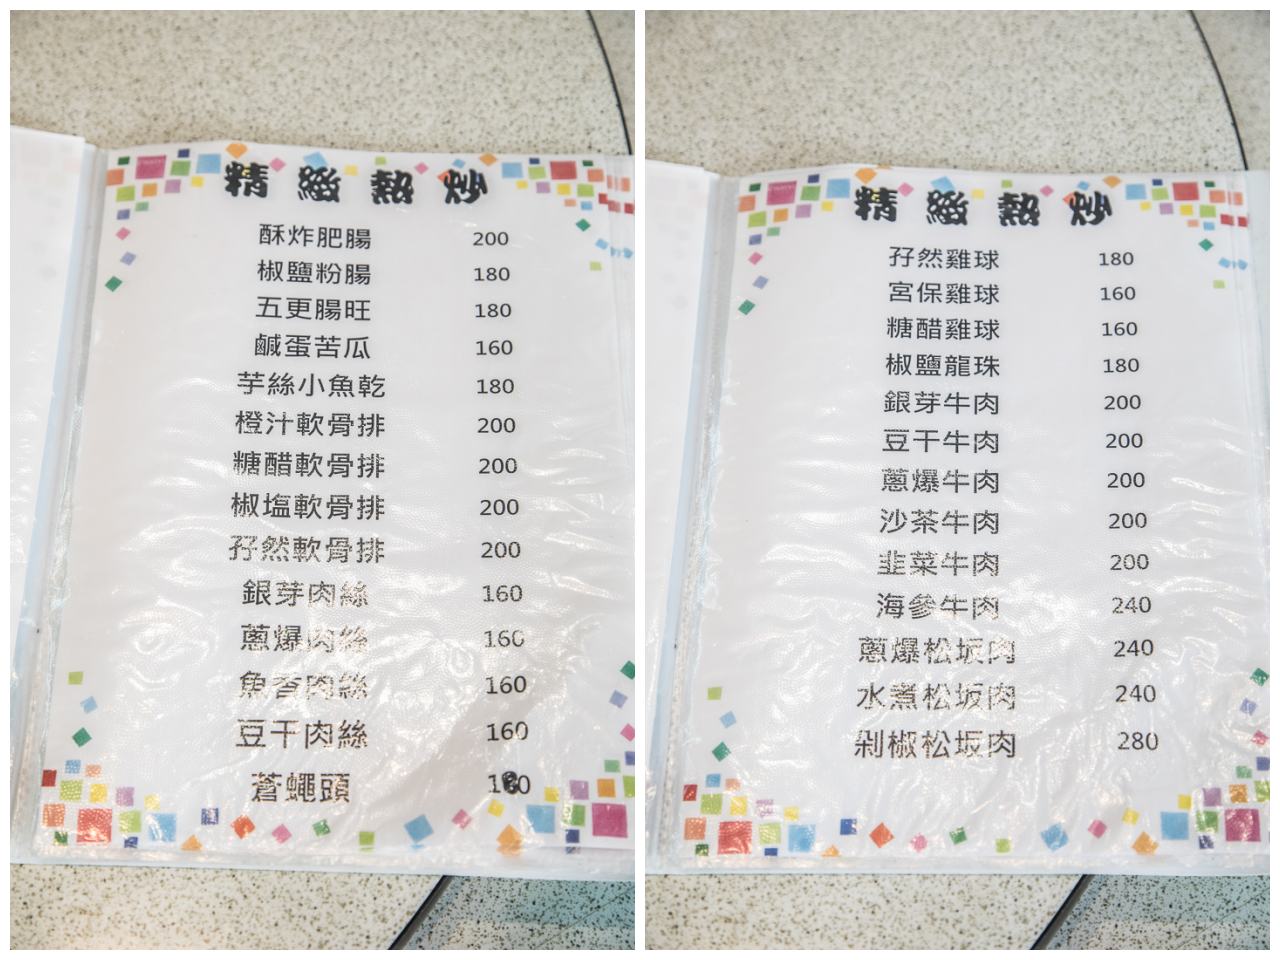 精緻熱炒
酥炸肥腸 200
椒鹽粉腸 180
五更腸旺 180
鹹蛋苦瓜 160
芋絲小魚乾 180
橙汁軟骨排 200
糖醋軟骨排 200
椒塩軟骨排 200
孜然軟骨排 200
銀芽肉絲 160
蔥爆肉絲 160
魚香肉絲 160
豆干肉絲 160
蒼蠅頭
精緻熱炒
孜然雞球 180
宮保雞球 160
糖醋雞球 160
椒鹽龍珠 180
銀芽牛肉 200
豆干牛肉 200
蔥爆牛肉 200
沙茶牛肉 200
韭菜牛肉 200
海參牛肉 240
蔥爆松坂肉 240
水煮松坂肉 240
剁椒松坂肉 280